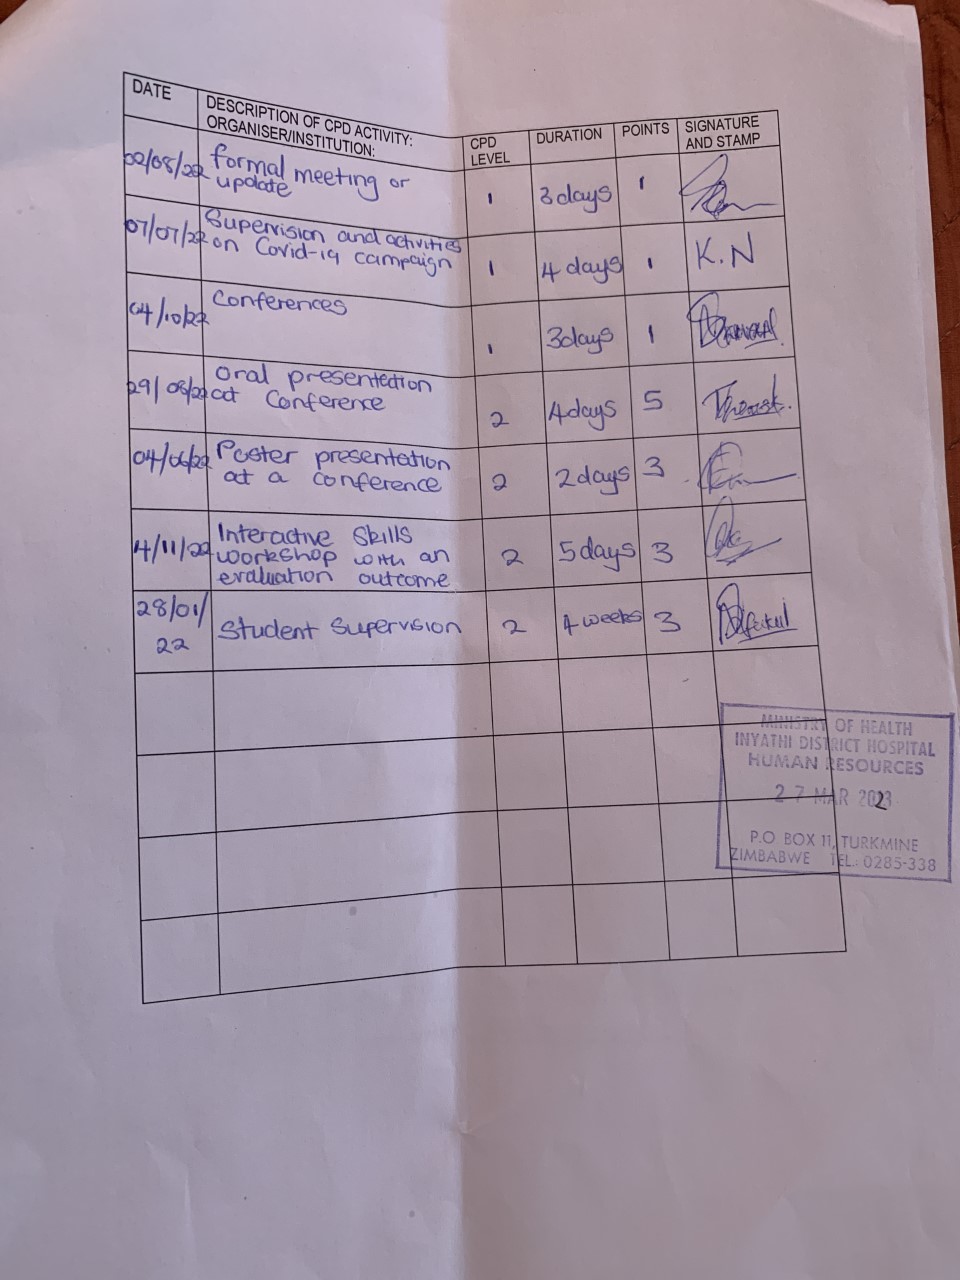 DATE
DESCRIPTION OF CPD ACTIVITY:
ORGANISER/INSTITUTION:
CPD
LEVEL
DURATION
POINTS
SIGNATURE
AND STAMP
02/08/22
formal meeting or
update
1
3 days
1
07/07/22
Supervision and activities
on Covid-19 campaign
1
4 days
1
K.N
04/10/22
Conferences
1
3 days
1
29/08/22
Oral presentation
at Conference
2
4 days
5
04/06/22
Poster presentation
at a conference
2
2 days
3
14/11/22
Interactive Skills
workshop with an
evaluation outcome
2
5 days
3
28/01/
22
Student Supervision
2
4 weeks
3
MINISTRY OF HEALTH
INYATHI DISTRICT HOSPITAL
HUMAN RESOURCES
27 MAR 2023
P.O BOX 11, TURKMINE
ZIMBABWE TEL: 0285-338